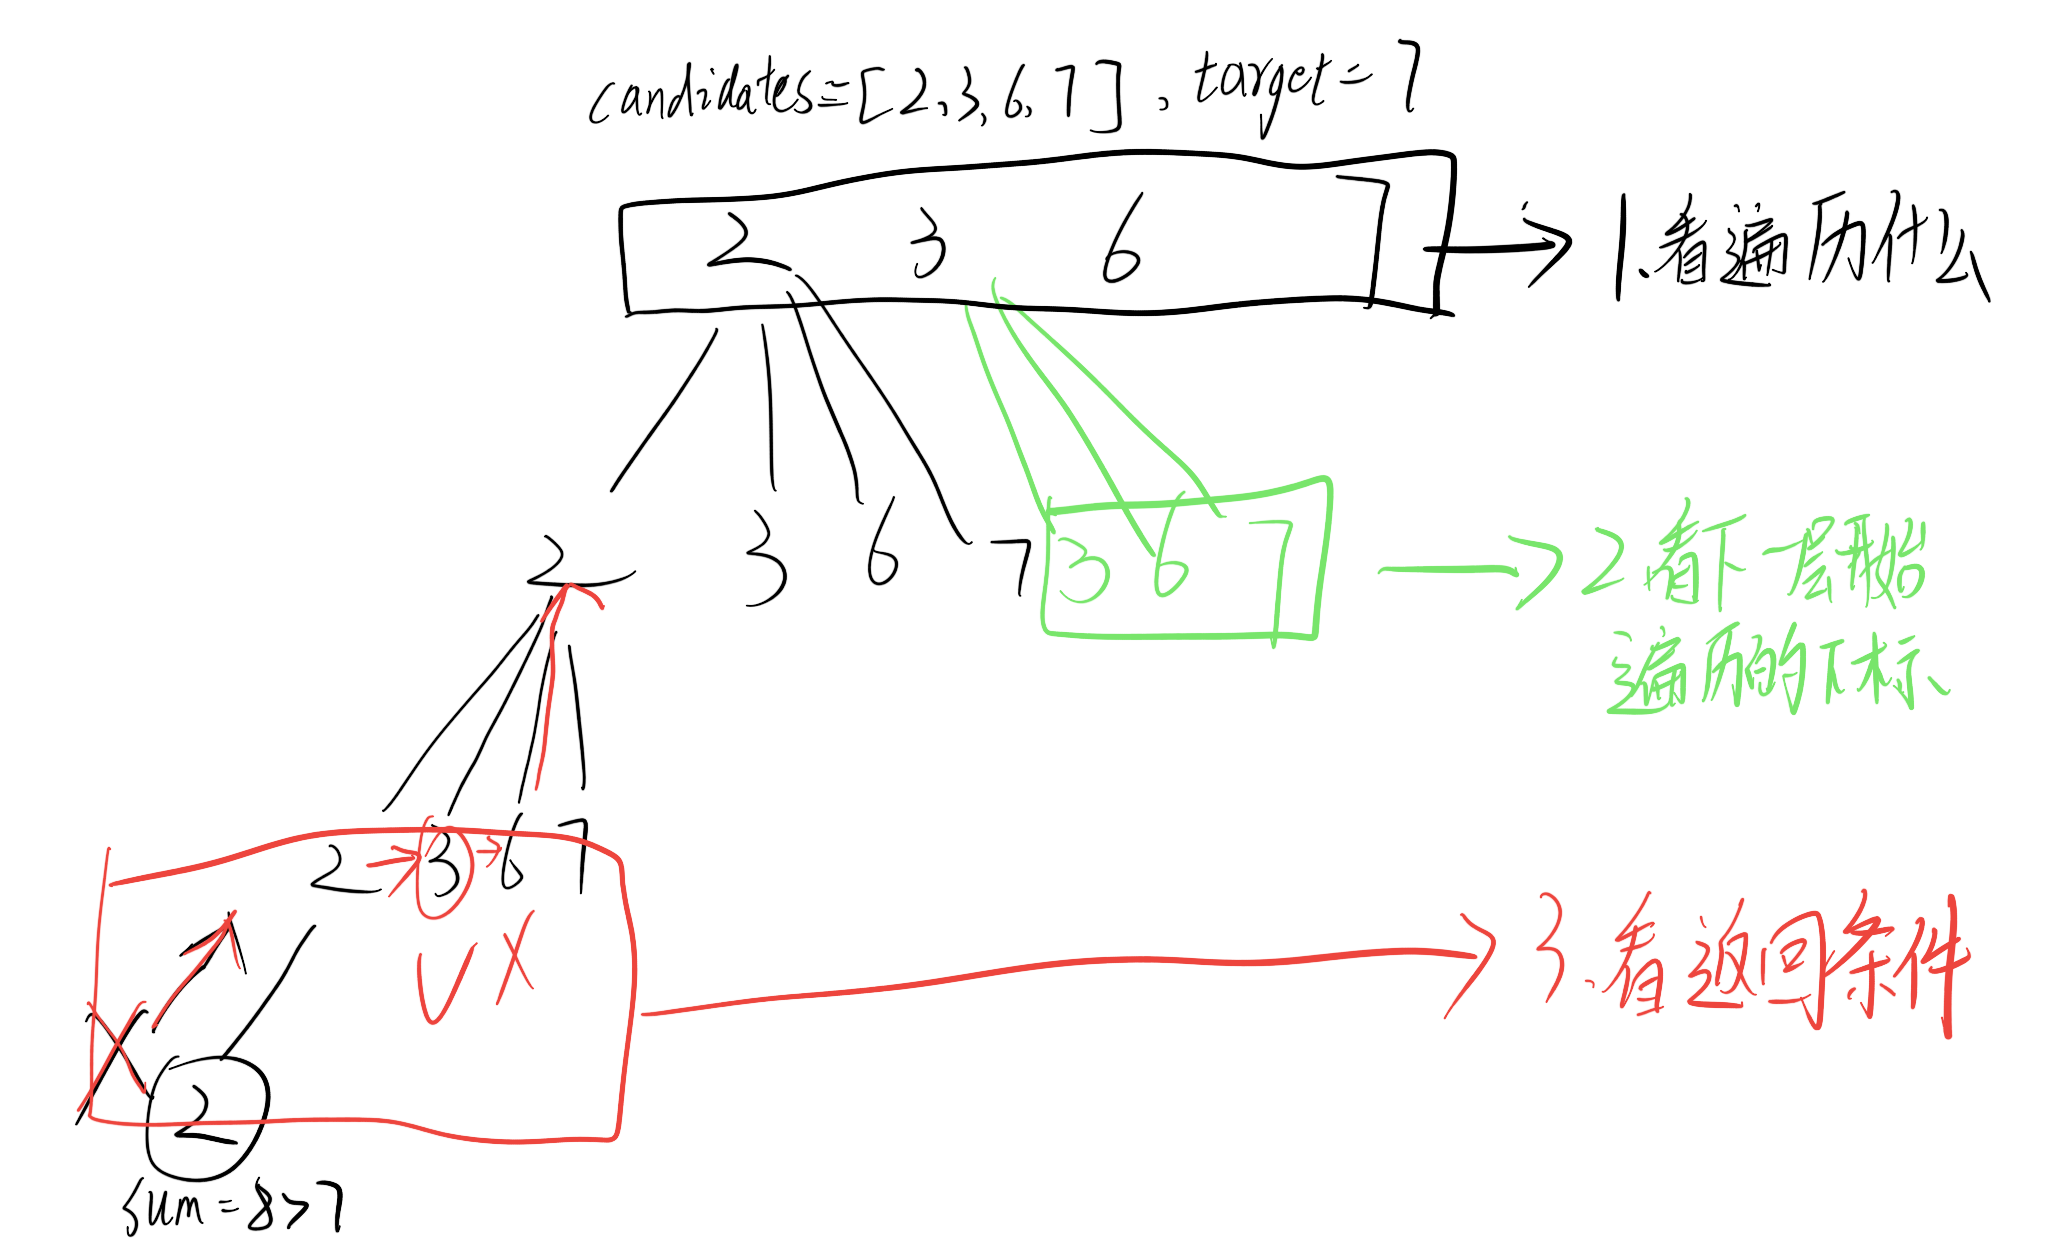 candidates=[2,3,6,7], target=7
2 3 6 7
1.看遍历什么
2 3 6 7
3 6 7
2.看下一层开始
遍历的下标
2 3 6 7
3.看返回条件
2
sum=8>7